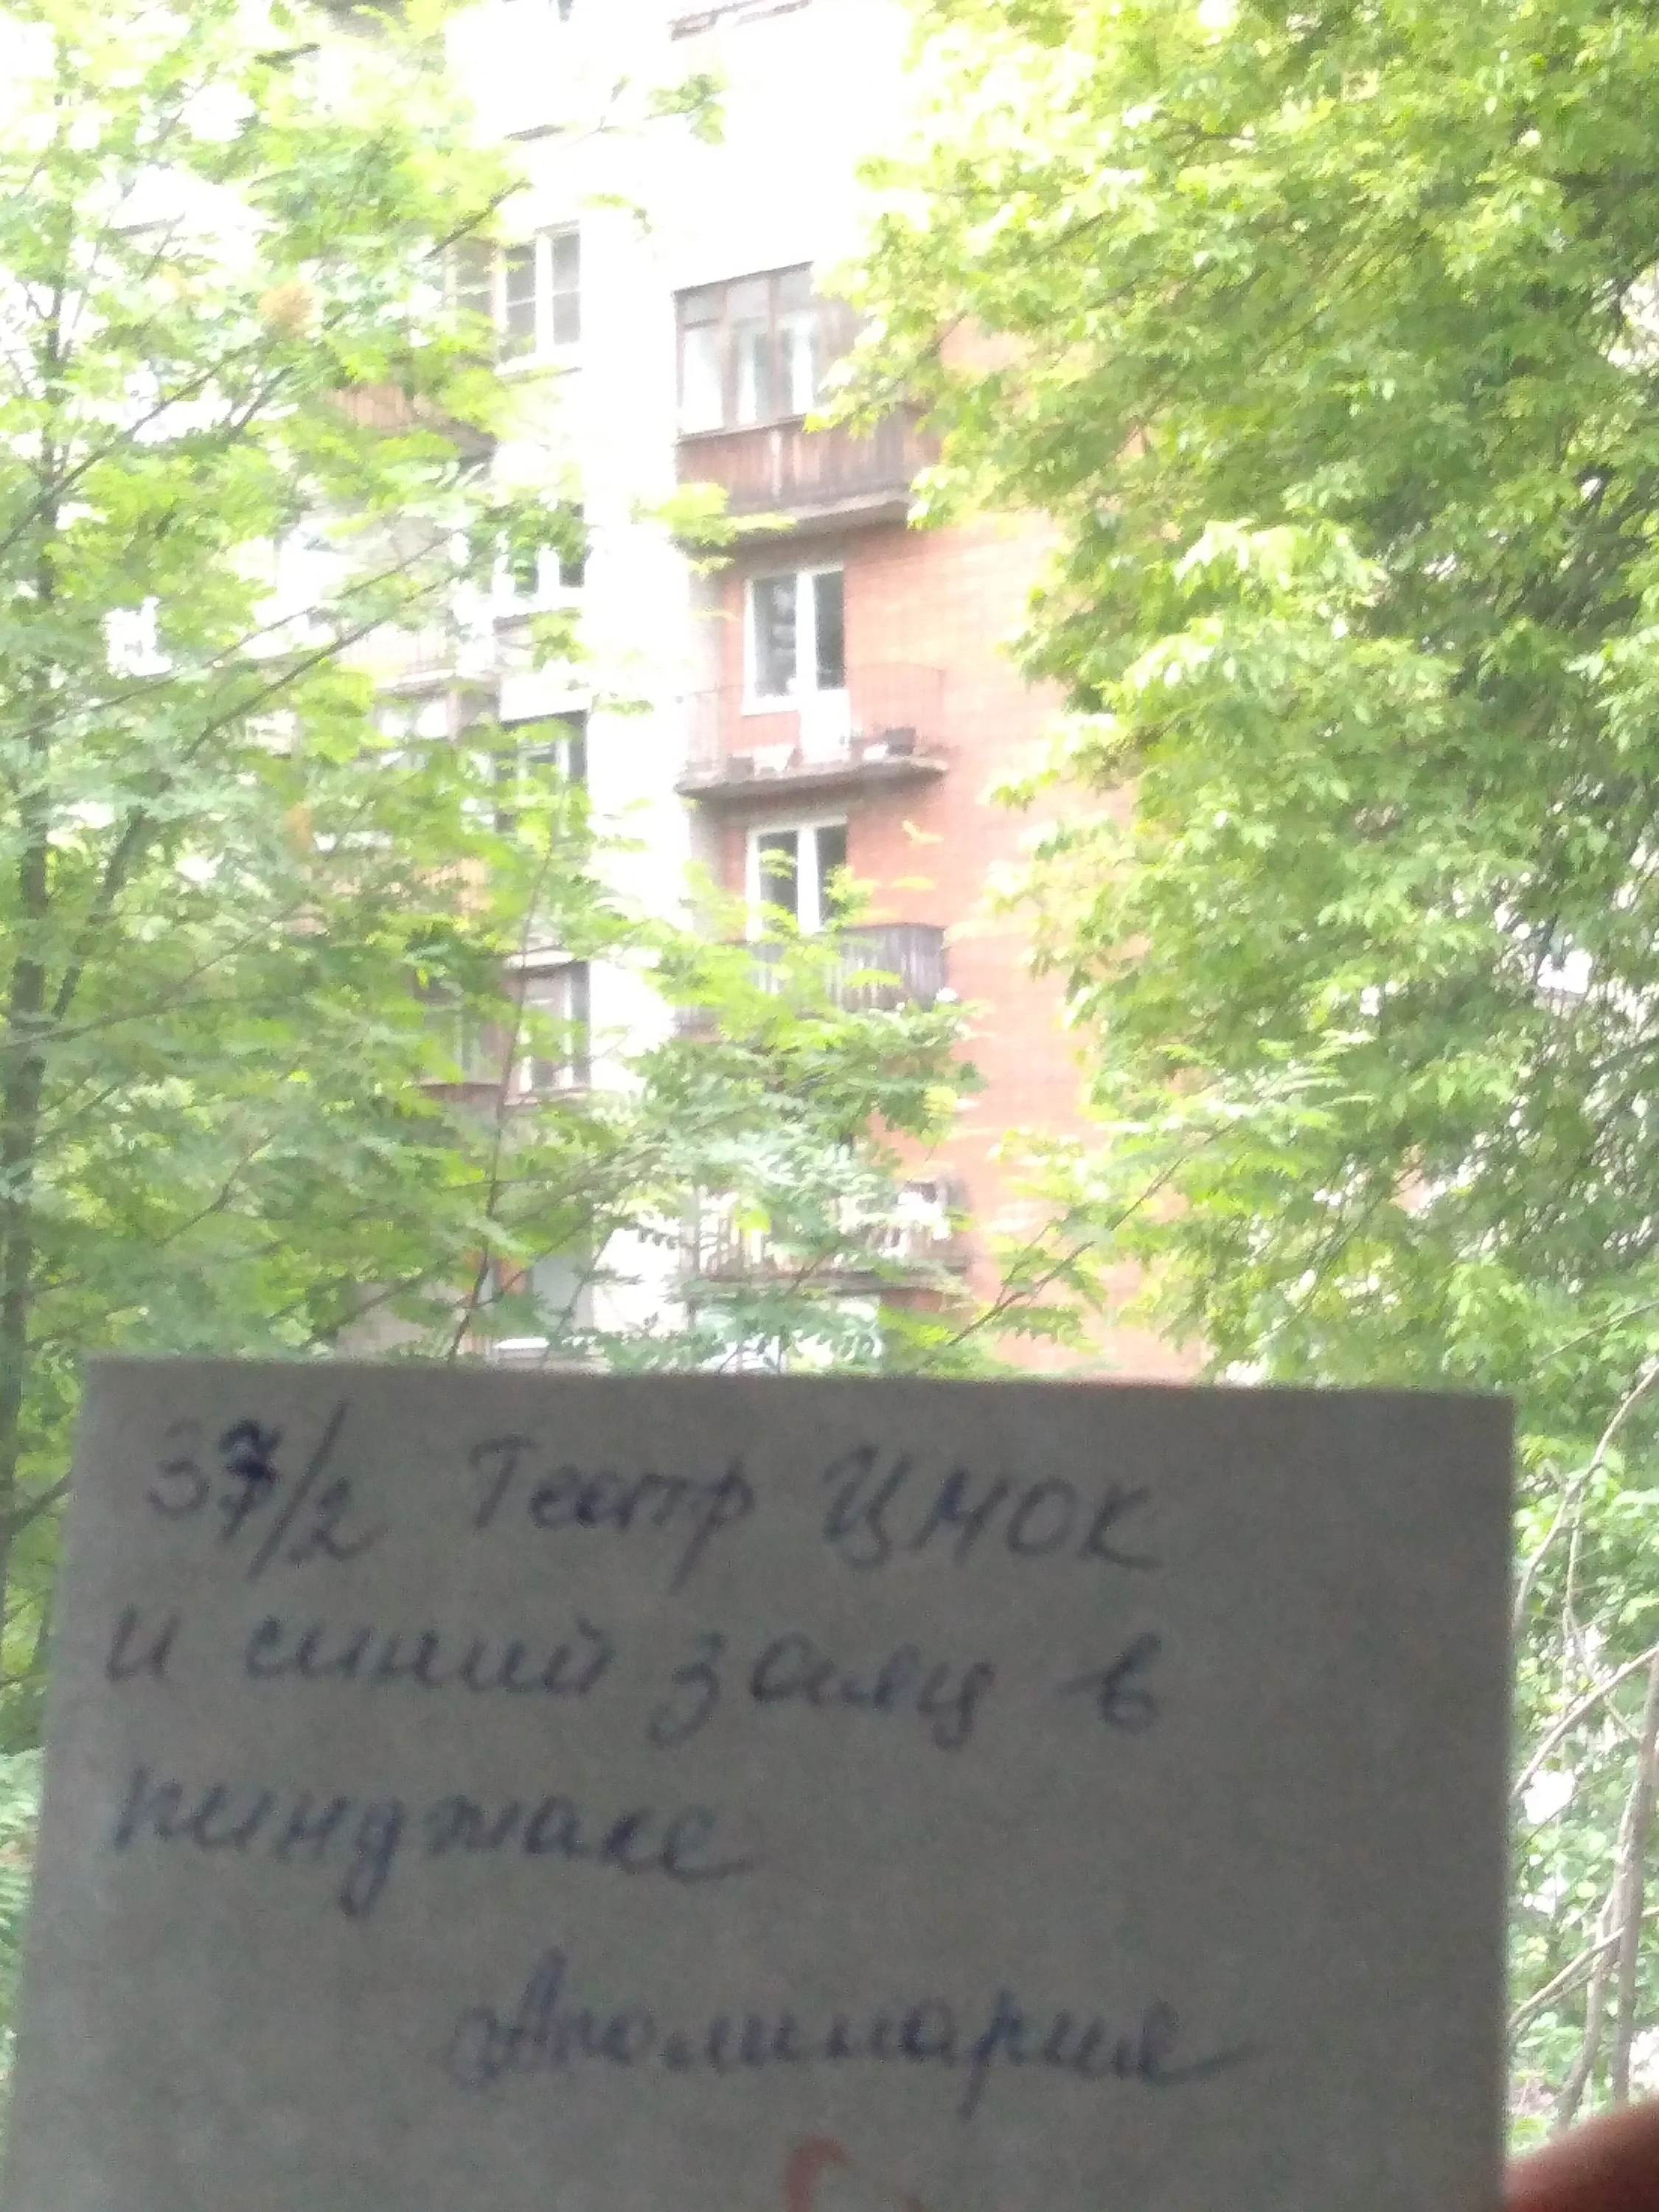 37/2 Театр ЦМОК
и синий заяц в
пинджаке
Аполинария